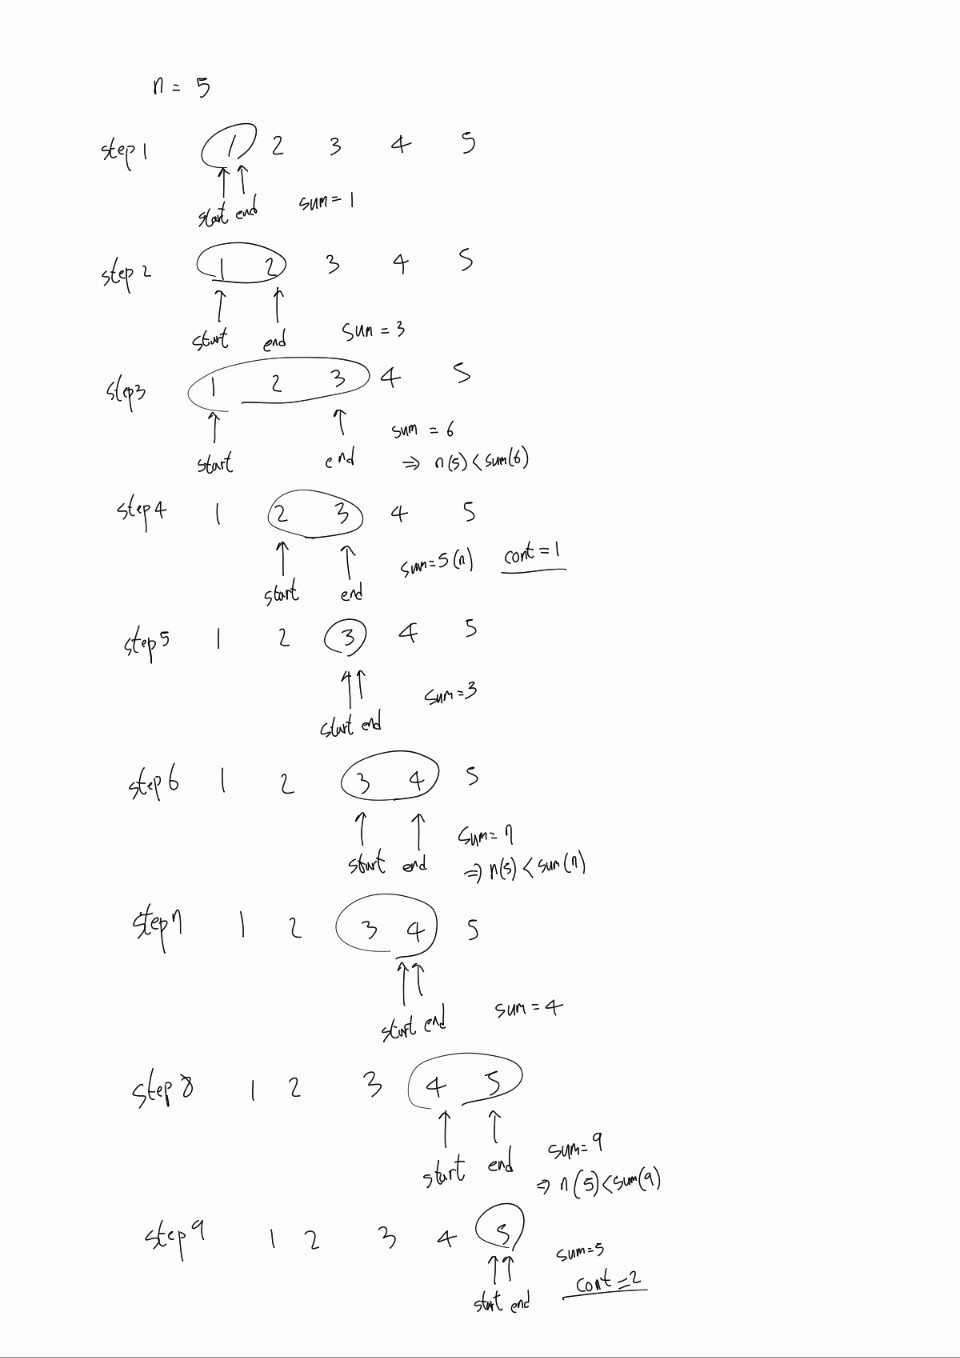 n = 5
step 1 1 2 3 4 5
start end sum = 1
step 2 1 2 3 4 5
start end sum = 3
step3 1 2 3 4 5
start end sum = 6
⇒ n(5) < sum(6)
step4 1 2 3 4 5
start end sum=5(n) cont=1
step5 1 2 3 4 5
start end sum=3
step6 1 2 3 4 5
start end sum=7
⇒ n(5) < sum(7)
step7 1 2 3 4 5
start end sum=4
step8 1 2 3 4 5
start end sum=9
⇒ n(5)<sum(9)
step9 1 2 3 4 5
start end sum=5
cont=2